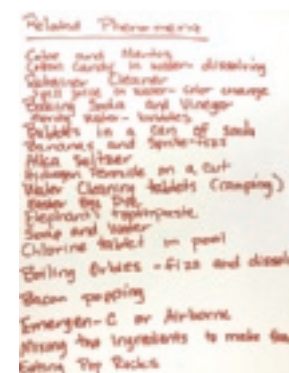 Related Phenomena
Coke and Mentos
Cotton Candy in water - dissolving
Retainer Cleaner
juice in water - color change
Baking Soda and Vinegar
water - bubbles
Bubbles in a can of soda
Bananas and Sprite - fizz
Alka Seltzer
Hydrogen Peroxide on a cut
Water Cleaning tablets (camping)
Easter Egg Dye
Elephant's toothpaste
Soap and Water
Chlorine tablet in pool
Boiling - fizz and
Bacon popping
Emergen-C or Airborne
Mixing two ingredients to make
Eating Pop Rocks